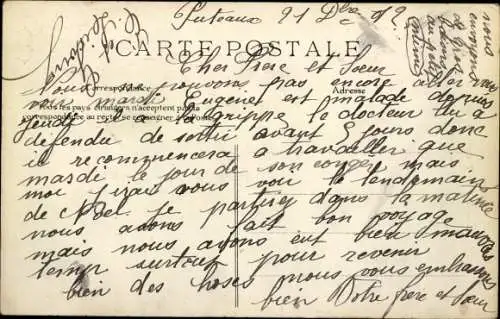 Puteaux 21 Dbre 1912
CARTE POSTALE
Cher Frère et Sœur
Correspondance
Adresse
Nous ne pouvons pas encore aller vous
voir mardi Eugène est malade depuis
Tous les pays étrangers n'acceptent pas la
jeudi il a la grippe le docteur lui a
correspondance au recto, se renseigner à la Poste
défendu de sortir avant 5 jours donc
il recommencera a travailler que
mardi le jour de son congé mais
moi j'irais vous voir le lendemain
de Noel je partirez dans la matinée
nous avons fait bon voyage
mais nous avons eut bien mauvais
temp surtout pour revenir
bien des choses nous vous embrassons
bien Votre frère et Sœur
nous
envoyons
au petit